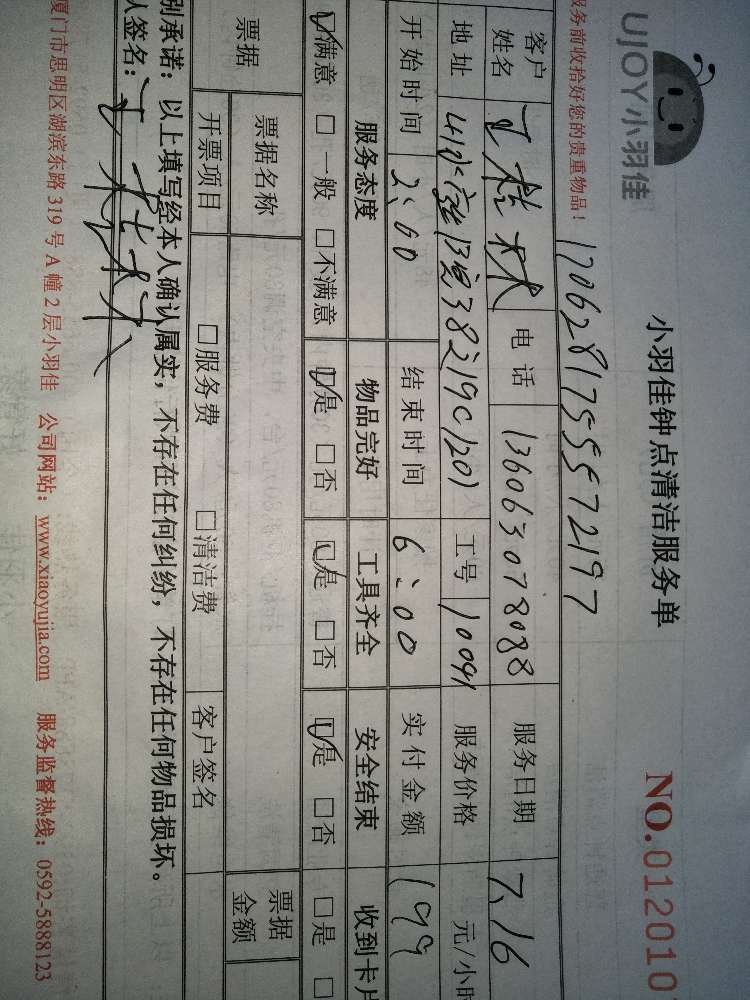 UJOY小羽佳
小羽佳钟点清洁服务单
NO.012010
务前收拾好您的贵重物品！
17062817555572197
客户姓名 王桂林 电话 136063078088 服务日期 7.16
地址 3821 9C1201 工号 10091 服务价格 元/小时
开始时间 2:00 结束时间 6:00 实付金额 199
服务态度 物品完好 工具齐全 安全结束 收到卡片
☑满意 □一般 □不满意 ☑是 □否 ☑是 □否 ☑是 □否 □是 □
票据 票据名称 票据金额
开票项目 □服务费 □清洁费 客户签名
别承诺：以上填写经本人确认属实，不存在任何纠纷，不存在任何物品损坏。
人签名：王桂林
厦门市思明区湖滨东路319号A幢2层小羽佳 公司网站：www.xiaoyujia.com 服务监督热线：0592-5888123